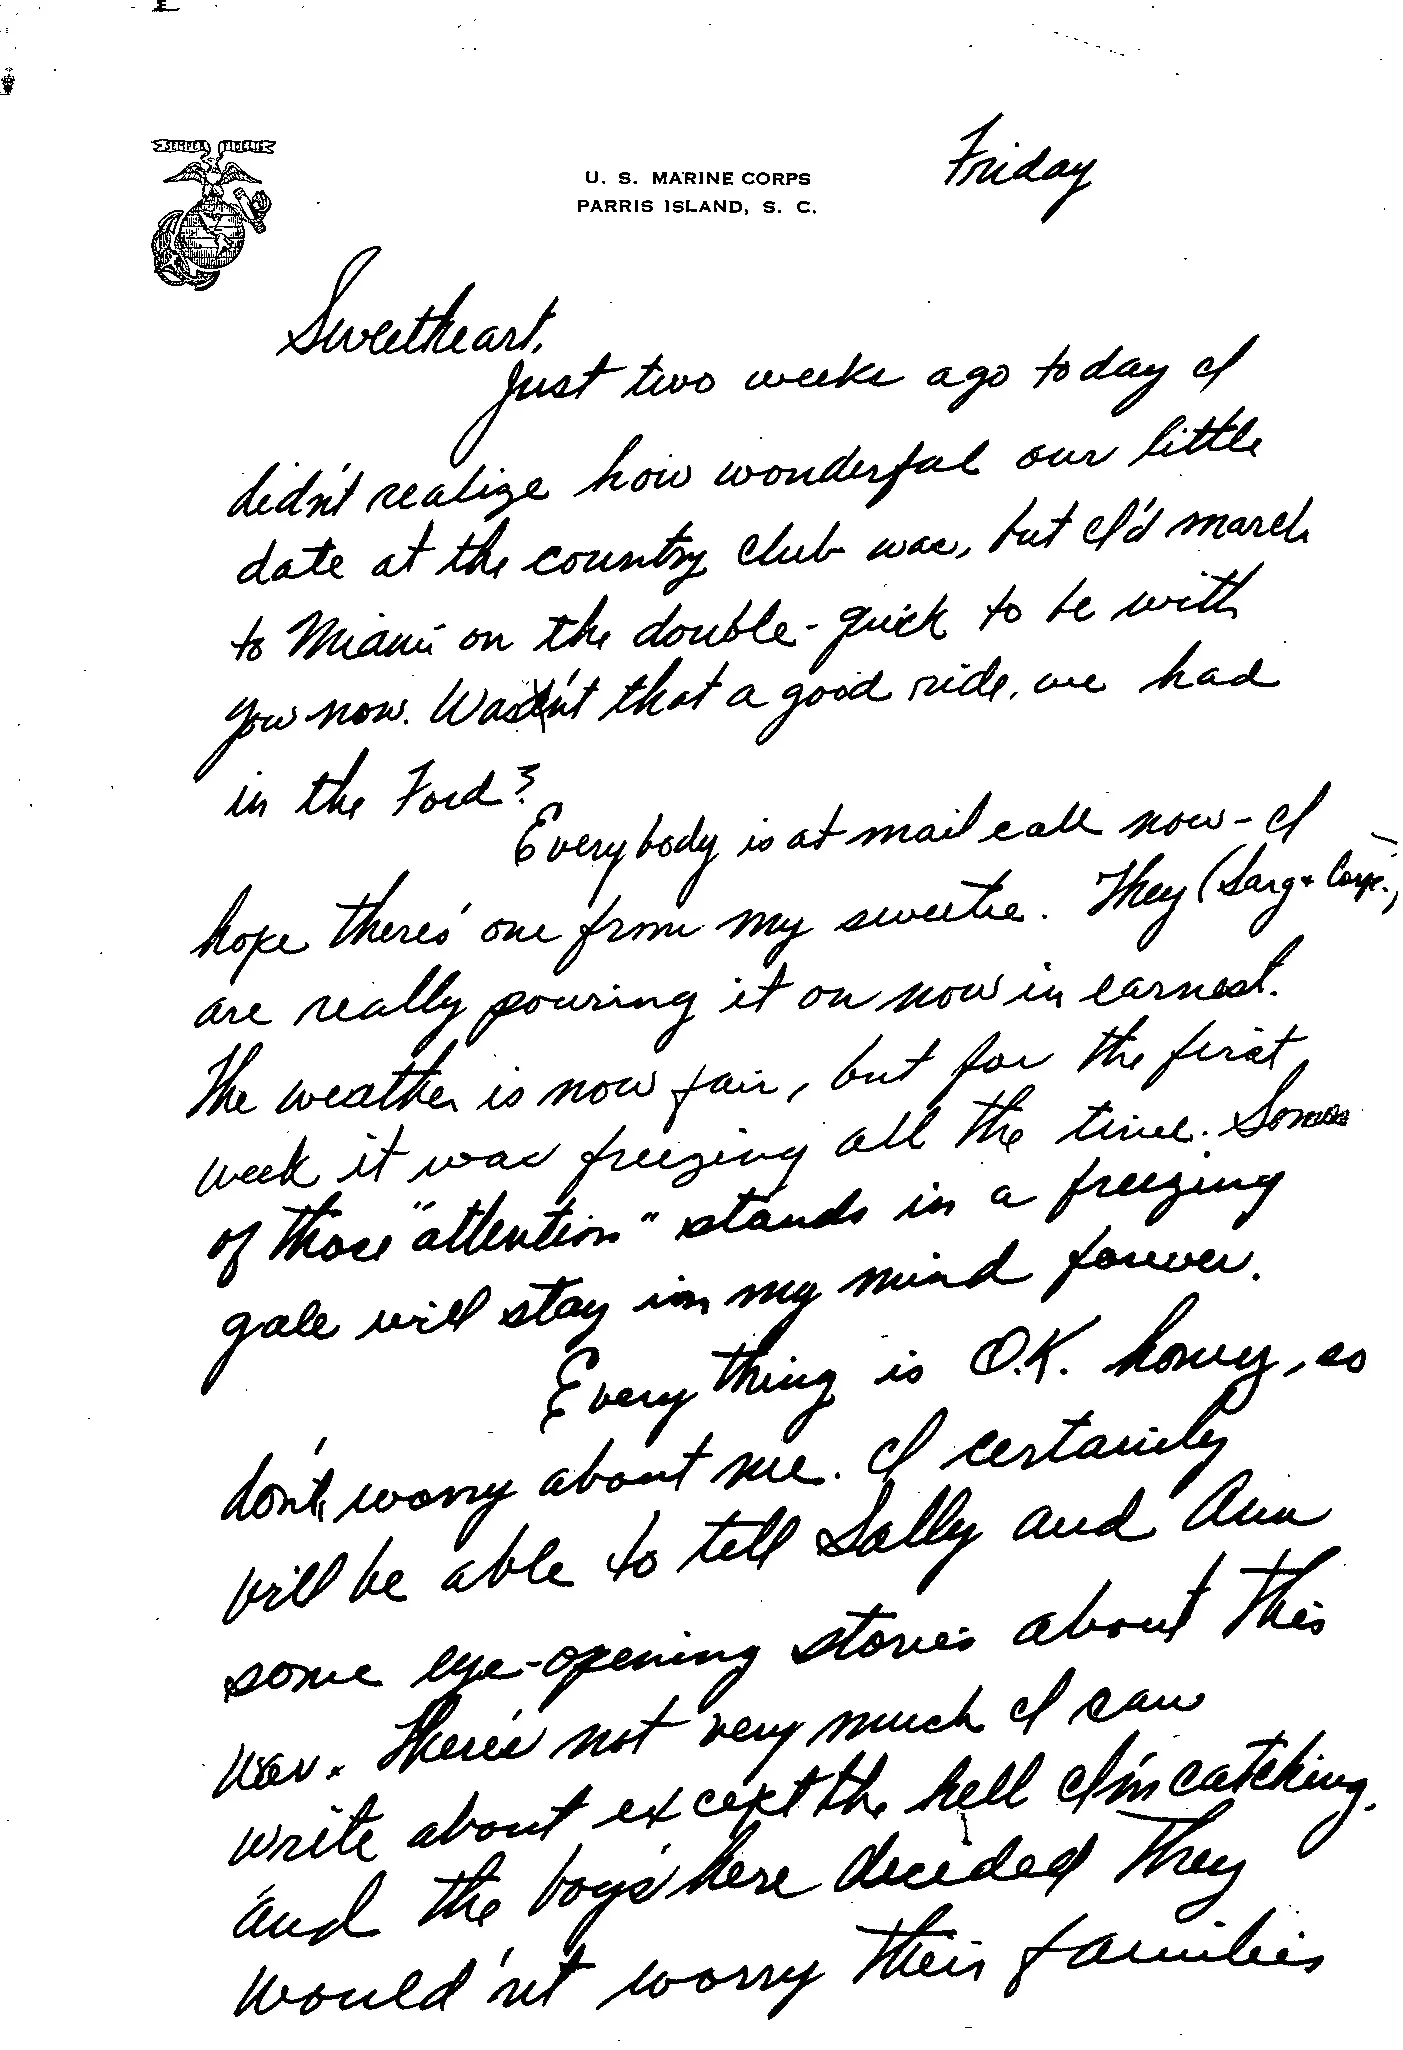 SEMPER FIDELIS
U. S. MARINE CORPS
PARRIS ISLAND, S. C.
Friday
Sweetheart,
Just two weeks ago today I
didn't realize how wonderful our little
date at the country club was, but I'd march
to Miami on the double-quick to be with
you now. Wasn't that a good ride, we had
in the Ford?
Everybody is at mail call now - I
hope there's one from my sweetie. They (Sarg + Corp.)
are really pouring it on now in earnest.
The weather is now fair, but for the first
week it was freezing all the time. Some
of those "attention" stands in a freezing
gale will stay in my mind forever.
Everything is O.K. honey, so
don't worry about me. I certainly
will be able to tell Sally and Ann
some eye-opening stories about this
war. There's not very much I can
write about except the hell I'm catching,
and the boys here decided they
would'nt worry their families